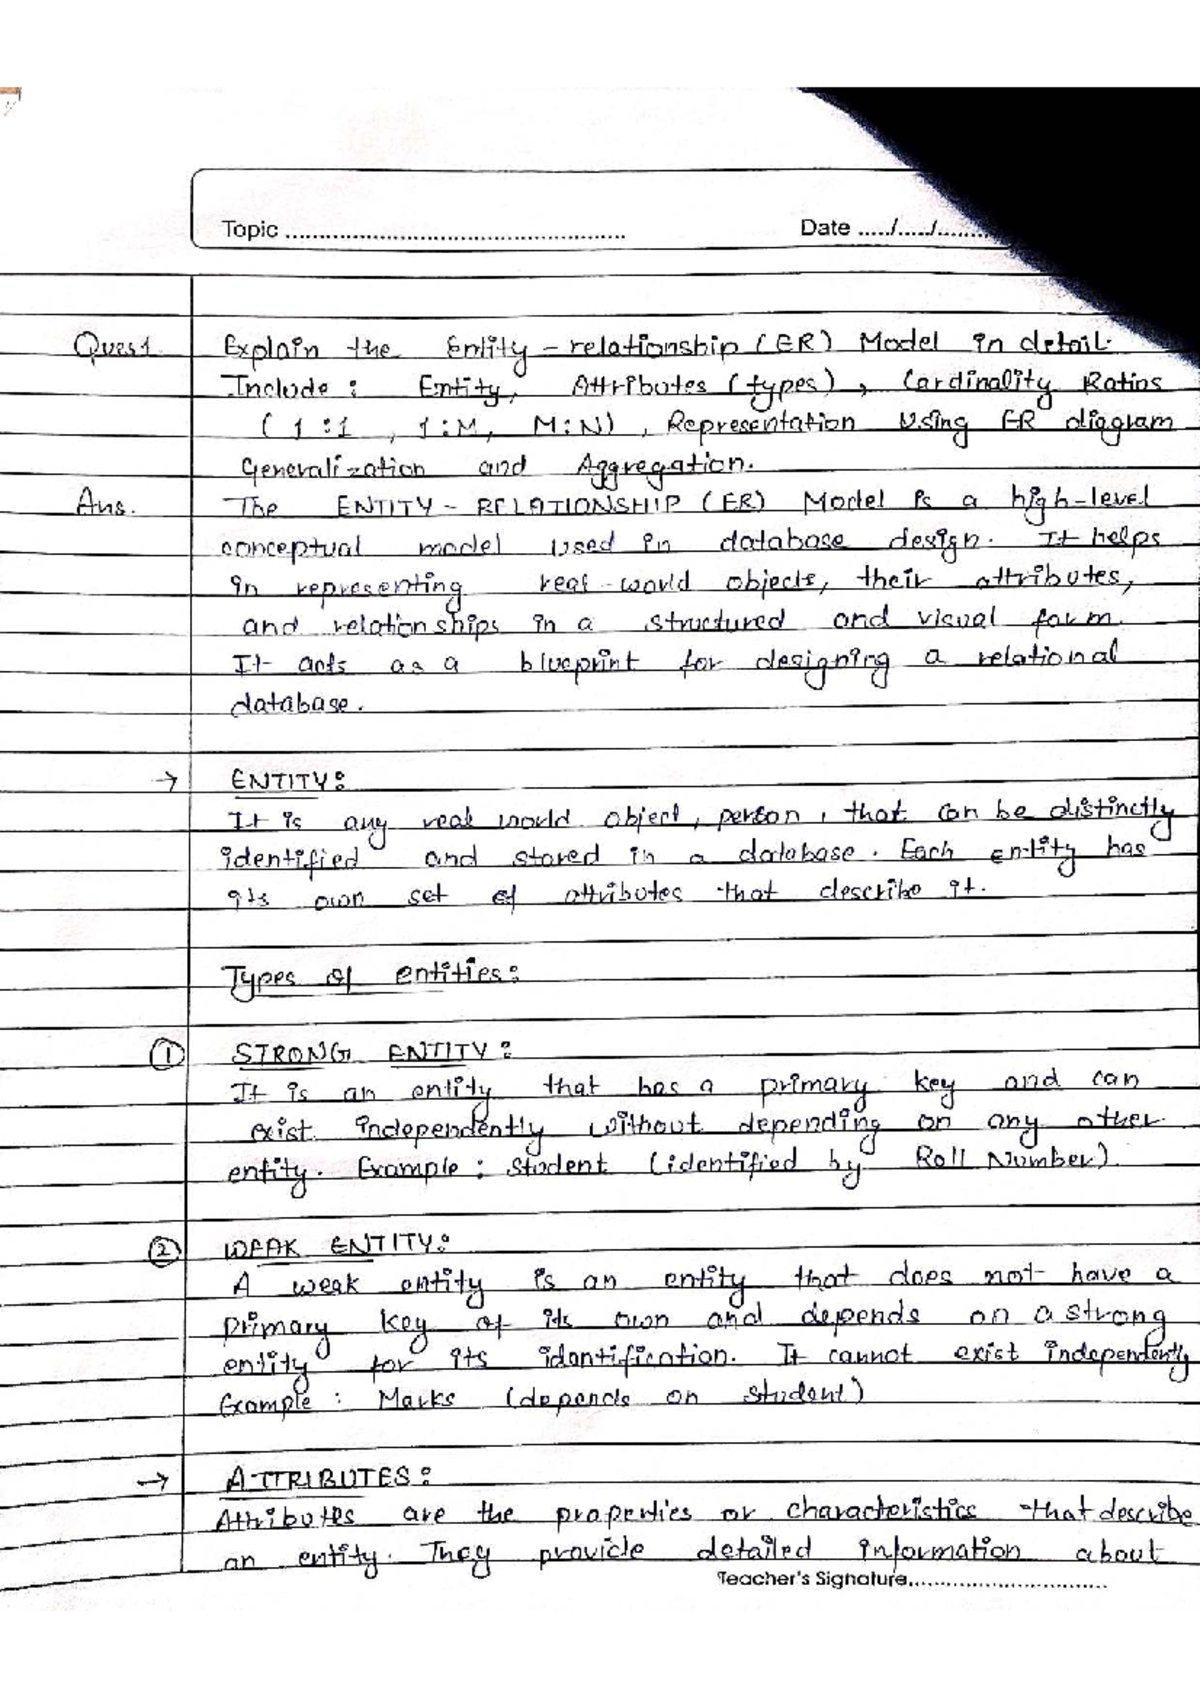 Topic ..................................................
Date ...../...../.........
Ques1 Explain the Entity-relationship (ER) Model in detail.
Include : Entity, Attributes (types), Cardinality Ratios
( 1:1 , 1:M, M:N) , Representation Using ER diagram
Generalization and Aggregation.
Ans. The ENTITY-RELATIONSHIP (ER) Model is a high-level
conceptual model used in database design. It helps
in representing real-world objects, their attributes,
and relationships in a structured and visual form.
It acts as a blueprint for designing a relational
database.
→ ENTITY:
It is any real world object, person, that can be distinctly
identified and stored in a database. Each entity has
its own set of attributes that describe it.
Types of entities:
① STRONG ENTITY:
It is an entity that has a primary key and can
exist independently without depending on any other
entity. Example: Student (identified by Roll Number).
② WEAK ENTITY:
A weak entity is an entity that does not have a
primary key of its own and depends on a strong
entity for its idantification. It cannot exist independently
Example : Marks (depends on student)
→ ATTRIBUTES:
Attributes are the properties or characteristics that describe
an entity. They provide detailed information about
Teacher's Signature..............................